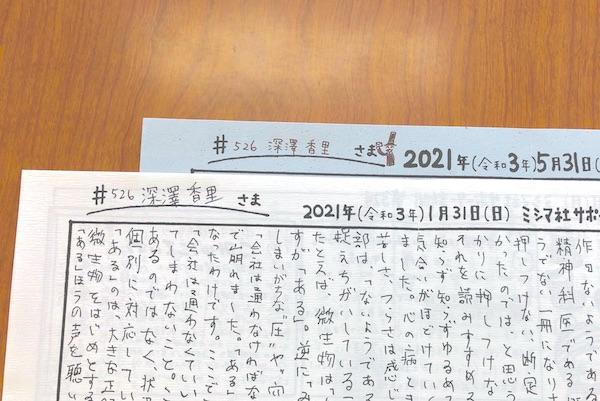 #526 深澤香里 さま
2021年(令和3年)5月31日(
#526 深澤香里 さま
2021年(令和3年)1月31日(日) ミシマ社サポ
精神科医である
うでない一冊になりま
押しつけない、断定
かったのでは、と思う
かりに押しつけな
それを読みすすめる
知らず知らずゆるめ
気合いがほどけてい
ました。心の病とま
苦しさ、つらさは感じ
部は、「ないようである
捉えちがいしている
たとえば、微生物は「
すが「ある」。逆に「
しまいがちな「圧」や
「会社は通わなければな
で山崩れました。「ある」
なったわけです。ここで
「会社は通わなくていい
てしまわないこと。こ
あるのではなく、状況
個別に対応してい
「ある」のは、大きな正
微生物をはじめとする
「ある」ほうの声を聴い